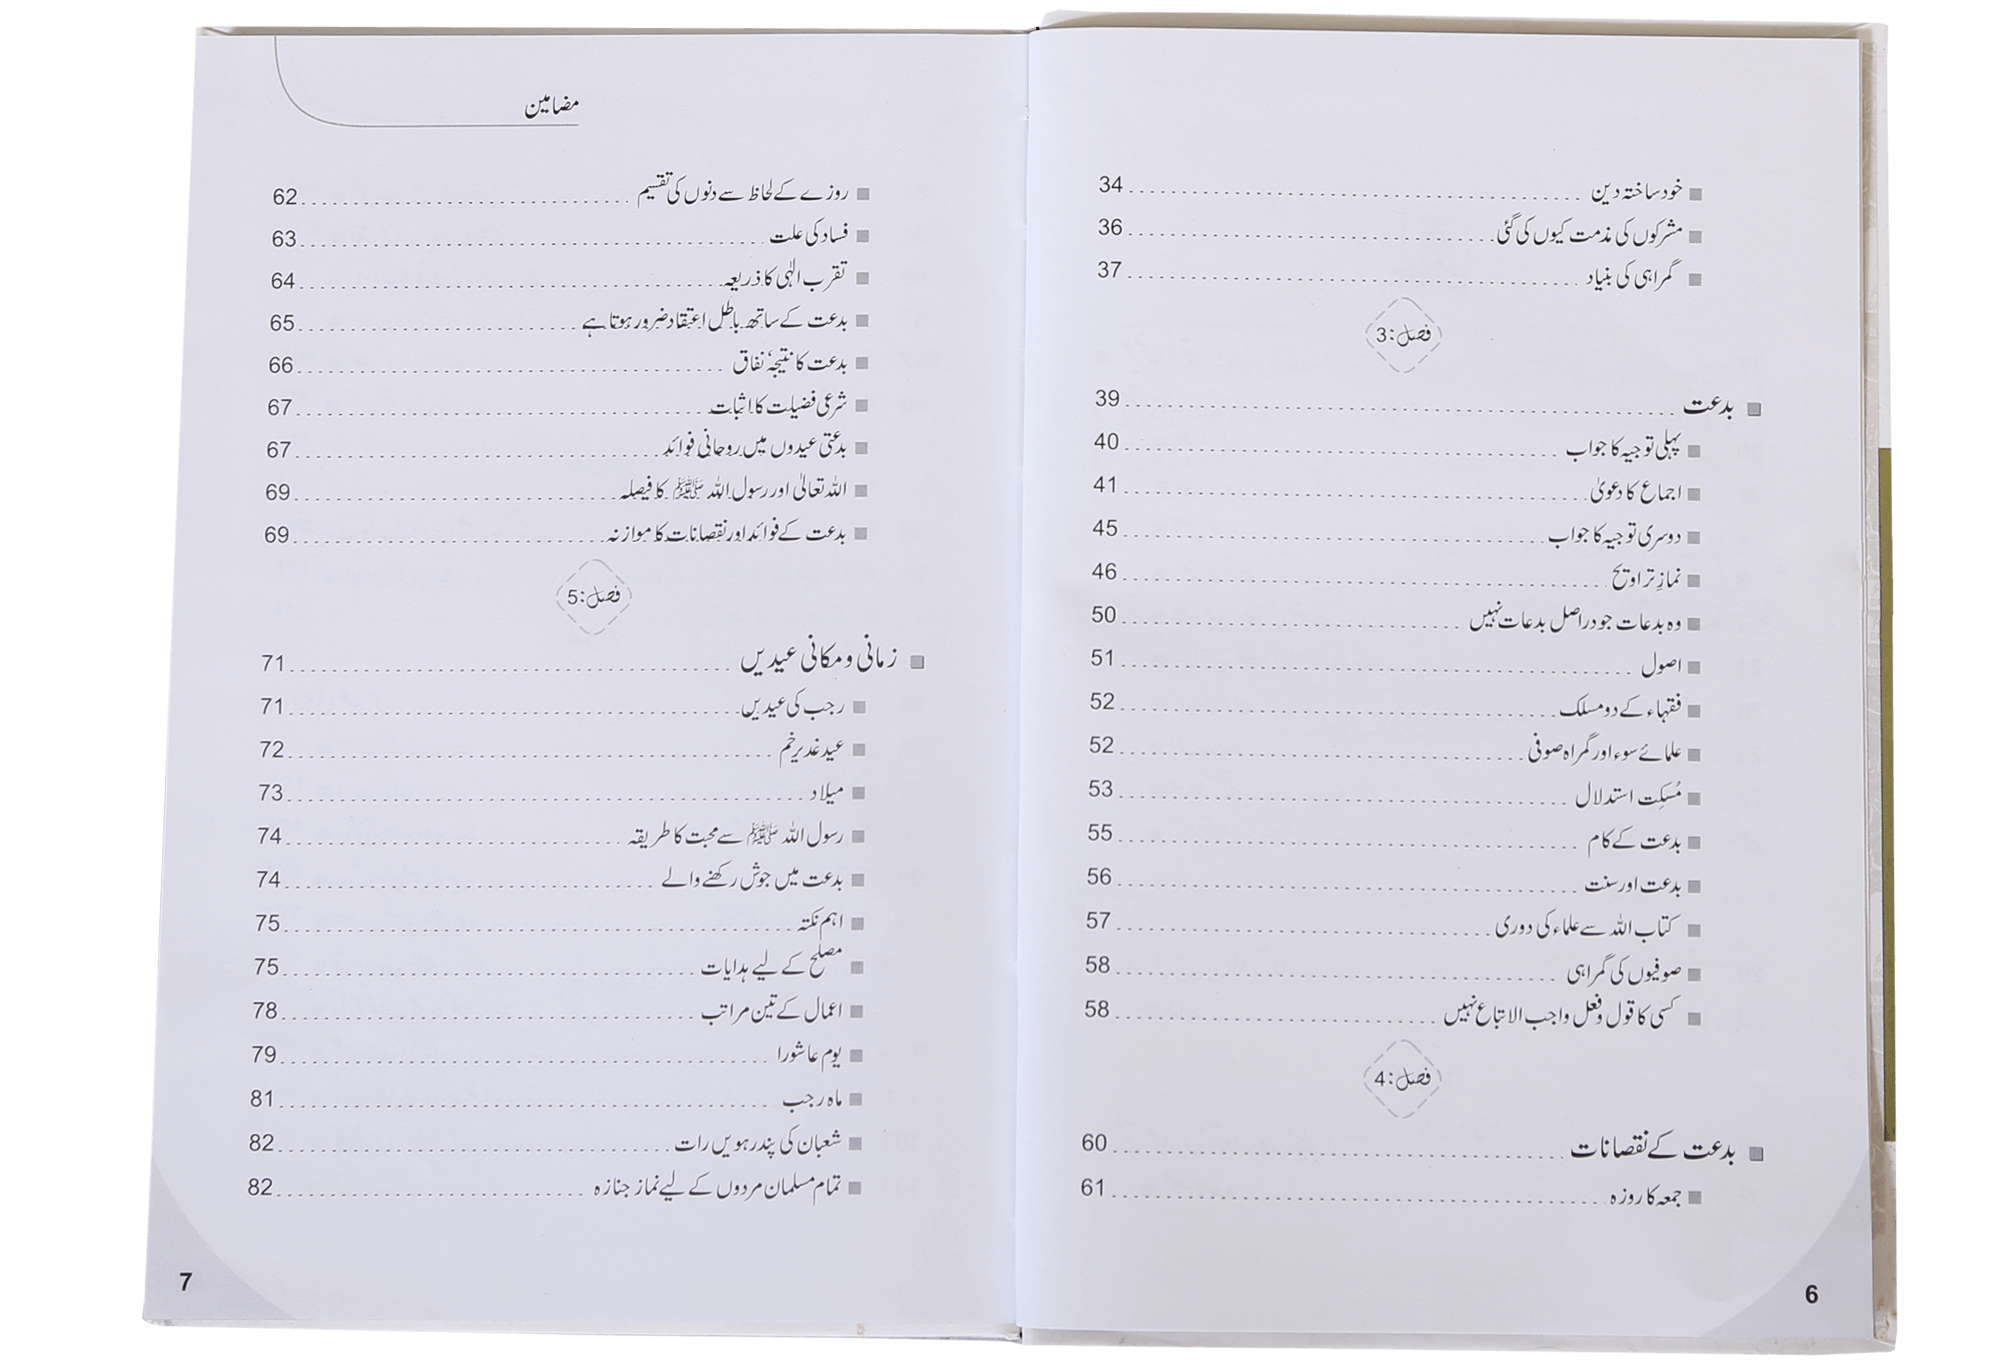 ■ خود ساختہ دین ........ 34
■ مشرکوں کی مذمت کیوں کی گئی ........ 36
■ گمراہی کی بنیاد ........ 37
فصل: 3
■ بدعت ........ 39
■ پہلی توجیہ کا جواب ........ 40
■ اجماع کا دعویٰ ........ 41
■ دوسری توجیہ کا جواب ........ 45
■ نمازِ تراویح ........ 46
■ وہ بدعات جو دراصل بدعات نہیں ........ 50
■ اصول ........ 51
■ فقہاء کے دو مسلک ........ 52
■ علمائے سوء اور گمراہ صوفی ........ 52
■ مُسکِت استدلال ........ 53
■ بدعت کے کام ........ 55
■ بدعت اور سنت ........ 56
■ کتاب اللہ سے علماء کی دوری ........ 57
■ صوفیوں کی گمراہی ........ 58
■ کسی کا قول وفعل واجب الاتباع نہیں ........ 58
فصل: 4
■ بدعت کے نقصانات ........ 60
■ جمعہ کا روزہ ........ 61
6
مضامین
■ روزے کے لحاظ سے دنوں کی تقسیم ........ 62
■ فساد کی علت ........ 63
■ تقرب الٰہی کا ذریعہ ........ 64
■ بدعت کے ساتھ باطل اعتقاد ضرور ہوتا ہے ........ 65
■ بدعت کا نتیجہ’ نفاق ........ 66
■ شرعی فضیلت کا اثبات ........ 67
■ بدعتی عیدوں میں روحانی فوائد ........ 67
■ اللہ تعالیٰ اور رسول اللہ ﷺ کا فیصلہ ........ 69
■ بدعت کے فوائد اور نقصانات کا موازنہ ........ 69
فصل: 5
■ زمانی و مکانی عیدیں ........ 71
■ رجب کی عیدیں ........ 71
■ عید غدیر خم ........ 72
■ میلاد ........ 73
■ رسول اللہ ﷺ سے محبت کا طریقہ ........ 74
■ بدعت میں جوش رکھنے والے ........ 74
■ اہم نکتہ ........ 75
■ مصلح کے لیے ہدایات ........ 75
■ اعمال کے تین مراتب ........ 78
■ یوم عاشورا ........ 79
■ ماہ رجب ........ 81
■ شعبان کی پندرہویں رات ........ 82
■ تمام مسلمان مردوں کے لیے نماز جنازہ ........ 82
7